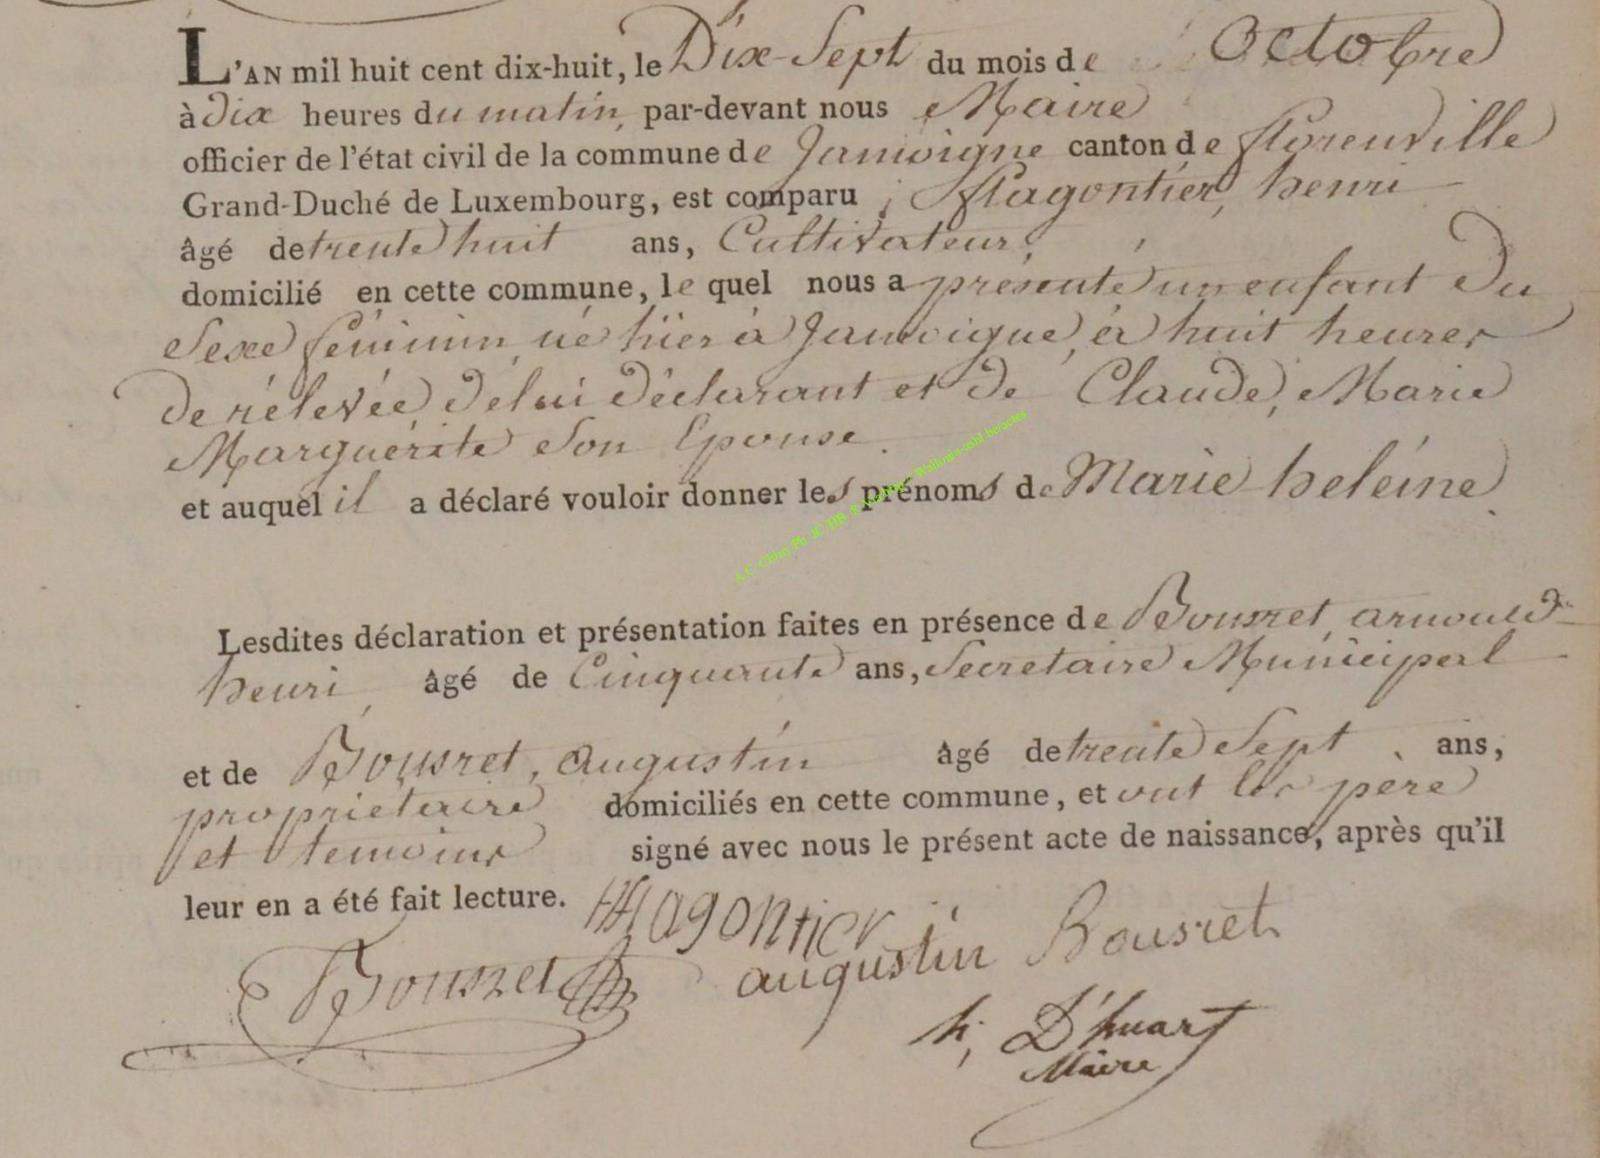 L'AN mil huit cent dix-huit, le Dix-Sept du mois de Octobre
à dix heures du matin, par-devant nous Maire
officier de l'état civil de la commune de Jamoigne canton de florenville
Grand-Duché de Luxembourg, est comparu flagontier, henri
âgé de trente huit ans, Cultivateur,
domicilié en cette commune, le quel nous a présenté un enfant du
Sexe féminin, né hier à Jamoigne, à huit heures
de rélevée, de lui déclarant et de Claude, Marie
Marguérite Son Epouse.
et auquel il a déclaré vouloir donner les prénoms de Marie heléine.
Lesdites déclaration et présentation faites en présence de Bousret, arnould
henri, âgé de Cinquante ans, Secretaire Municipal
et de Bousret, augustin âgé de trente Sept ans,
proprietaire domiciliés en cette commune, et ont les père
et temoins signé avec nous le présent acte de naissance, après qu'il
leur en a été fait lecture. HFlagontier
Bousret augustin Bousret
h; D'huart
Maire